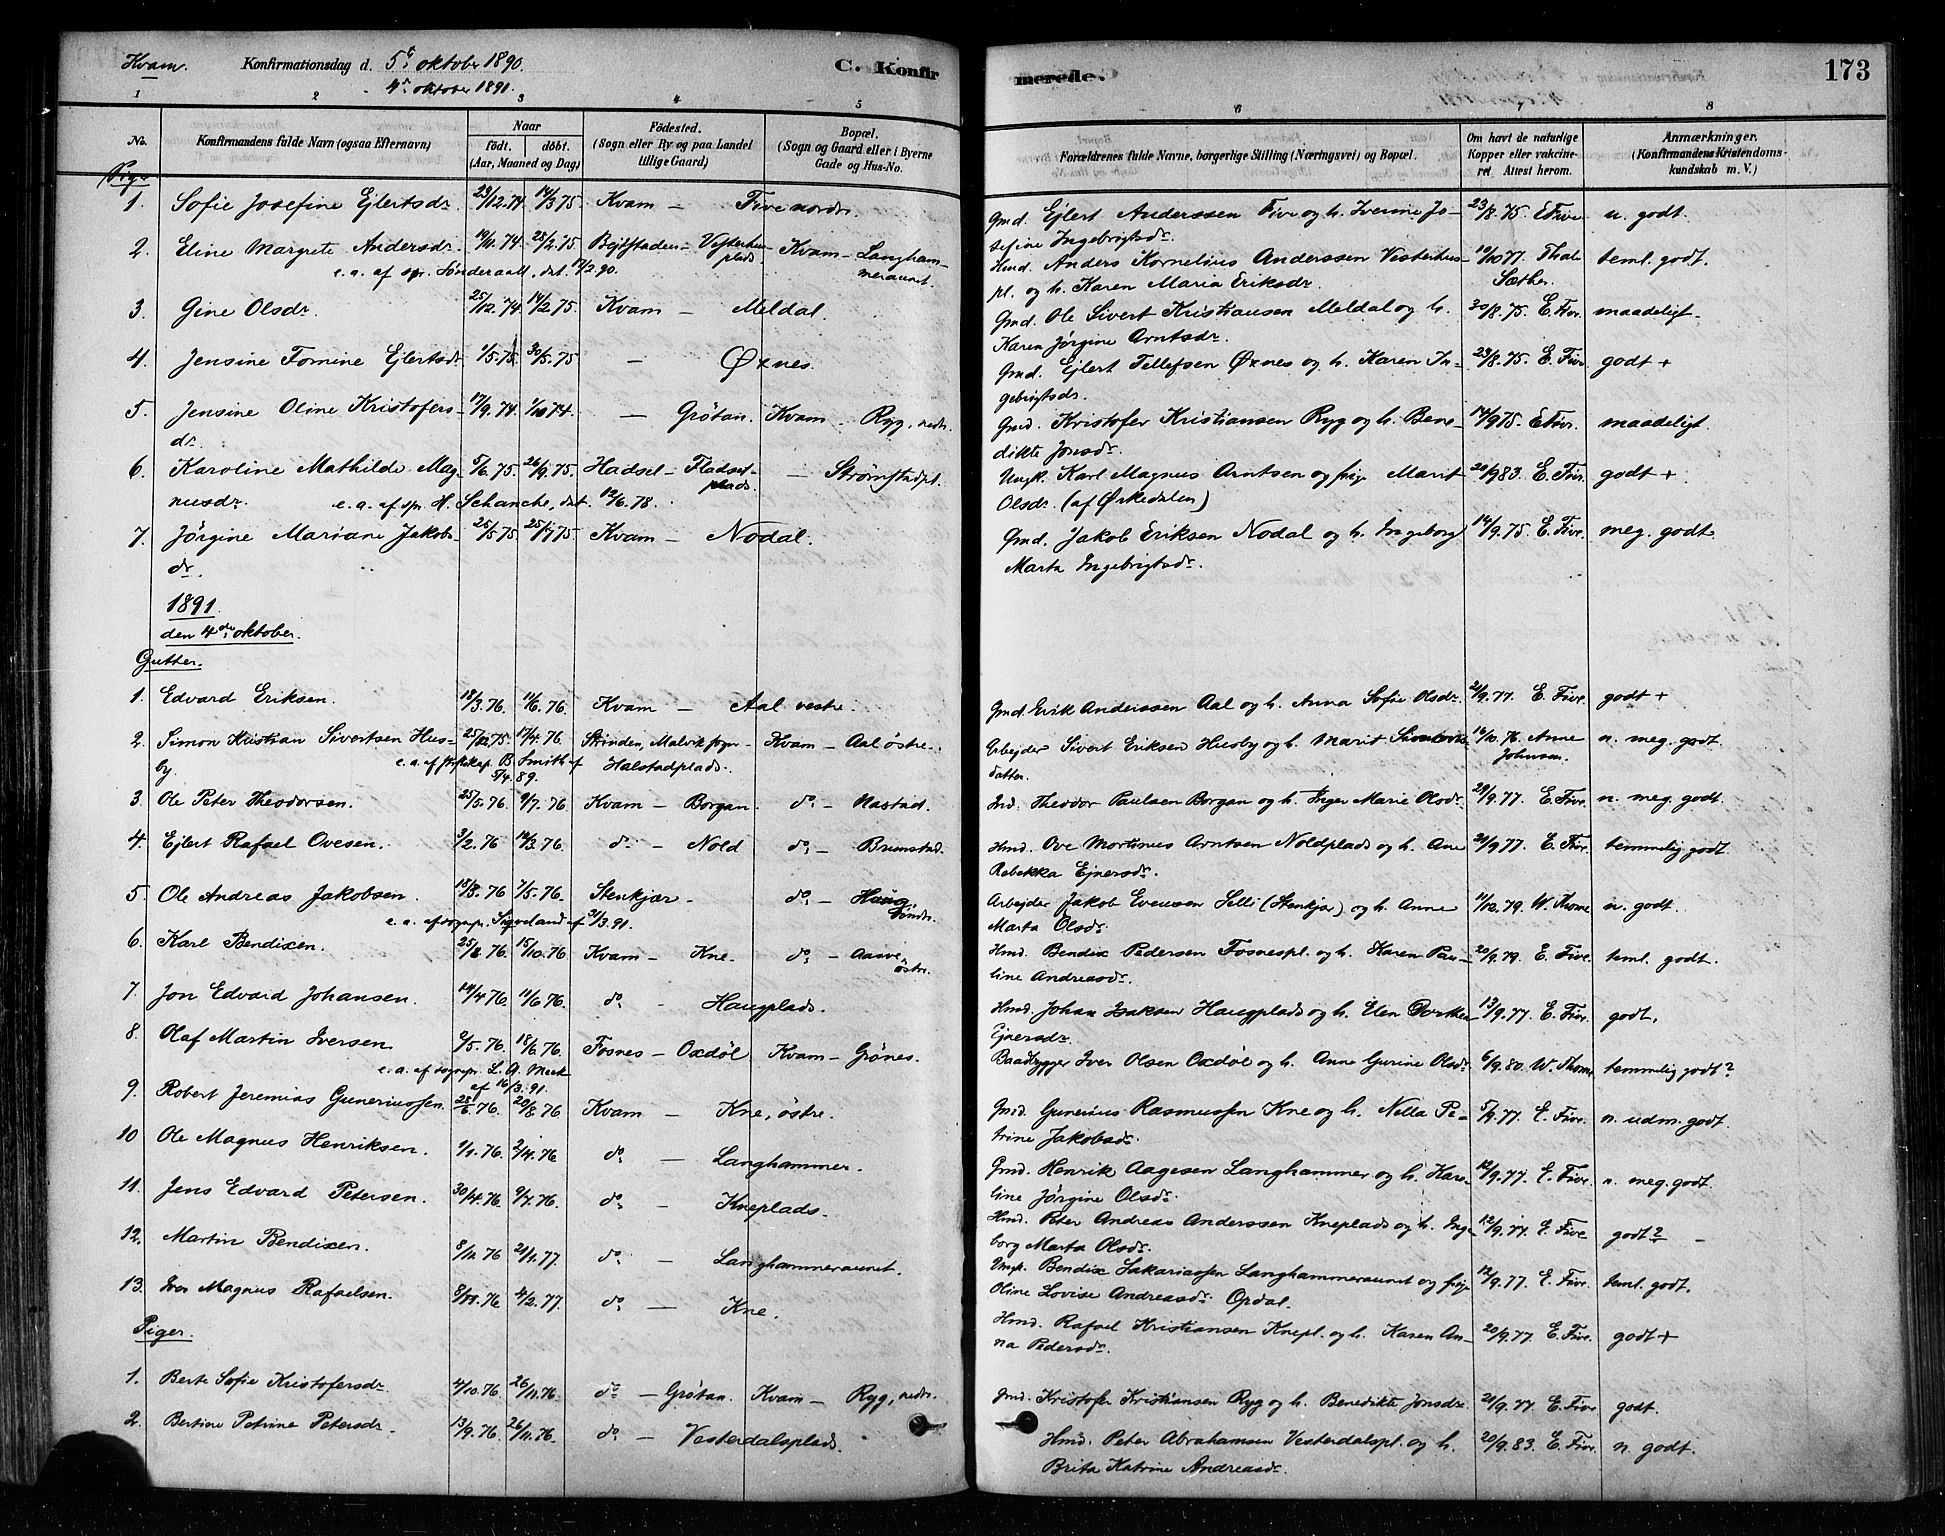 Kvam. Konfirmationsdag d. 5t oktober 1890. C. Konfirmerede. 173
4de oktober 1891.
1 2 3 4 5 6 7 8
No. Konfirmandens fulde Navn (ogsaa Efternavn) Naar født. døbt. (Aar, Maaned og Dag) Fødested. (Sogn eller By og paa Landet tillige Gaard) Bopæl. (Sogn og Gaard eller i Byerne Gade og Hus-No. Forældrenes fulde Navne, borgerlige Stilling (Næringsvei) og Bopæl. Om havt de naturlige Kopper eller vakcineret. Attest herom. Anmærkninger. (Konfirmandens Kristendomskundskab m. V.)
Piger
1. Sofie Josefine Ejlertsdr. 23/12.74 14/3.75 Kvam — Five nordr. Gmd. Ejlert Anderssen Five og h. Iverine Jo- 23/8.75 E Five n. godt.
sefine Ingebrigtsdr.
2. Eline Margrete Andersdr. 19/11.74. 25/2.75 Bejtstaden — Vesterhus- Kvam — Langham- Hmd. Anders Kornelius Anderssen Vesterhus- 10/10 77. Thal. teml. godt.
plads meraunet.
e. a. af spr. Sønderaall, dat. 17/2.90. pl. og h. Karen Maria Eriksdr. Sæther.
3. Gine Olsdr. 25/12.74 14/2.75. Kvam — Meldal. Gmd. Ole Sivert Kristiansen Meldal og h. 30/8.75. E. Five. maadeligt.
Karen Jørgine Arntsdr.
4. Jensine Fomine Ejlertsdr 1/5.75 30/5.75 — Øxnes. Gmd. Ejlert Tellefsen Øxnes og h. Karen In- 23/8.75. E. Five godt +
gebrigtsdr.
5. Jensine Oline Kristofers- 17/9.74. 1/10 74 — Grøtan. Kvam — Ryg, nedr. Gmd. Kristofer Kristiansen Ryg og h. Bene- 14/9 75. E Five. maadeligt.
dr. dikte Jonsdr.
6. Karoline Mathilde Mag- 5/6.75. 26/9.75. Hadsel — Fladset- — Strømstadpl. Ungk. Karl Magnus Arntsen og pige Marit 20/9 83. E. Five. godt +
plads.
nusdr. e. a. af spr. H. Schanche, dat. 12/6.78. Olsdr. (af Ørkedalen)
7. Jørgine Mariane Jakobs- 25/5.75. 25/7 75 Kvam — Nodal. Gmd. Jakob Eriksen Nodal og h. Ingeborg 14/9.75. E. Five. meg. godt
dr. Marta Ingebrigtsdr.
1891.
den 4de oktober.
Gutter.
1. Edvard Eriksen. 18/3.76. 11/6.76. Kvam — Aal vestre. Gmd. Erik Anderssen Aal og h. Anna Sofie Olsdr. 21/9.77. E. Five. godt +
2. Simon Kristian Sivertsen Hus- 25/12.75. 17/4.76. Strinden, Malvik sogn — Kvam — Aal østre. Arbejder Sivert Eriksen Husby og h. Marit 16/10.76. Anne n. meg. godt.
by. e. a. af B. Smith af Halstadplads. datter. Johnsen.
5/4.89.
3. Ole Peter Theodorsen. 25/5.76. 9/7.76 Kvam — Borgan. do. — Nastad. Ind. Theodor Paulsen Borgan og h. Inger Marie Olsdr. 29/9.77. E. Five. n. meg. godt.
4. Ejlert Rafael Ovesen. 3/2.76 14/3.76. do. — Nold do. — Brunstad. Hmd. Ove Mortinus Arntsen Noldplads og h. Ane 20/9 77. E. Five. temmelig godt.
Rebekka Ejnersdr.
5. Ole Andreas Jakobsen. 15/3.76 7/5.76. Stenkjær — do. — Haug, Arbejder Jakob Evensen Selli (Stenkjær) og h. Anne 11/10.79. W. Thome n. godt.
søndr.
e. a. af sognepr. Sigveland af 21/3.91. Marta Olsdr.
6. Karl Bendixen. 25/8.76. 15/10.76 Kvam — Kne. do. — Aasve, Hmd. Bendix Pedersen Fosnespl. og h. Karen Pau- 20/9.79. E. Five. teml. godt.
østre. line Andreasdr.
7. Jon Edvard Johansen. 14/4 76. 11/6 76. do. — Haugplads. Hmd. Johan Isaksen Haugplads og h. Elen Dorthea 13/9.77. E. Five. godt.
Ejnersdr.
8. Olaf Martin Iversen 2/5.76. 18/6.76. Fosnes — Oxdøl Kvam — Grønes. Baadbygger Iver Olsen Oxdøl og h. Anne Gurine Olsdr. 6/9.80. W. Thome temmelig godt?
e. a. af sognepr. L. A. Meek
af 16/3.91.
9. Robert Jeremias Guneriussen. 28/6.76. 20/8 76 Kvam — Kne, østre. Gmd. Gunerius Rasmussen Kne og h. Nella Pe- 5/9.77. E. Five. n. udm. godt.
trine Jakobsdr.
10 Ole Magnus Henriksen. 1/1.76. 2/4.76 do. — Langhammer. Gmd. Henrik Aagesen Langhammer og h. Kare- 12/9.77. E. Five. n. meg. godt.
line Jørgine Olsdr.
11. Jens Edvard Petersen. 30/4.76 9/7.76. do. — Kneplads. Hmd. Peter Andreas Anderssen Kneplads og h. Inge- 12/9.77. E. Five godt?
borg Marta Olsdr.
12. Martin Bendixen. 8/11 76 21/1.77. do. — Langhammeraunet. Ungk. Bendix Sakariassen Langhammeraunet og pige 12/9.77. E. Five. teml. godt.
Oline Lovise Andreasdr. Opdal.
13. Iver Magnus Rafaelsen. 8/11.76 4/2.77. do. — Kne. Hmd. Rafael Kristiansen Knepl. og h. Karen An- 20/9.77. E. Five. godt +
na Pedersdr.
Piger.
1. Berte Sofie Kristofersdr. 4/10.76. 26/11.76. do. — Grøtan. Kvam — Ryg, nedr. Gmd. Kristofer Kristiansen Ryg og h. Benedikte Jonsdr. 21/9.77. E. Five. godt.
2. Bertine Petrine Petersdr. 13/9.76. 26/11.76. do. — Vesterdalsplads. Hmd. Peter Abrahamsen Vesterdalspl. og h. 20/9.83. E. Five. n. godt.
Brita Katrine Andreasdr.